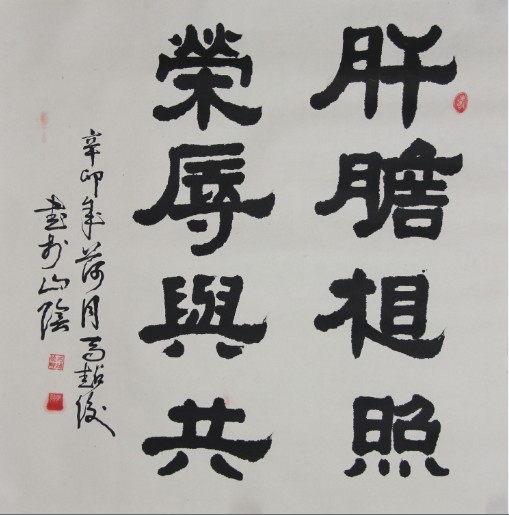 肝膽相照
榮辱與共
辛卯年荷月馬越俊
書於山陰